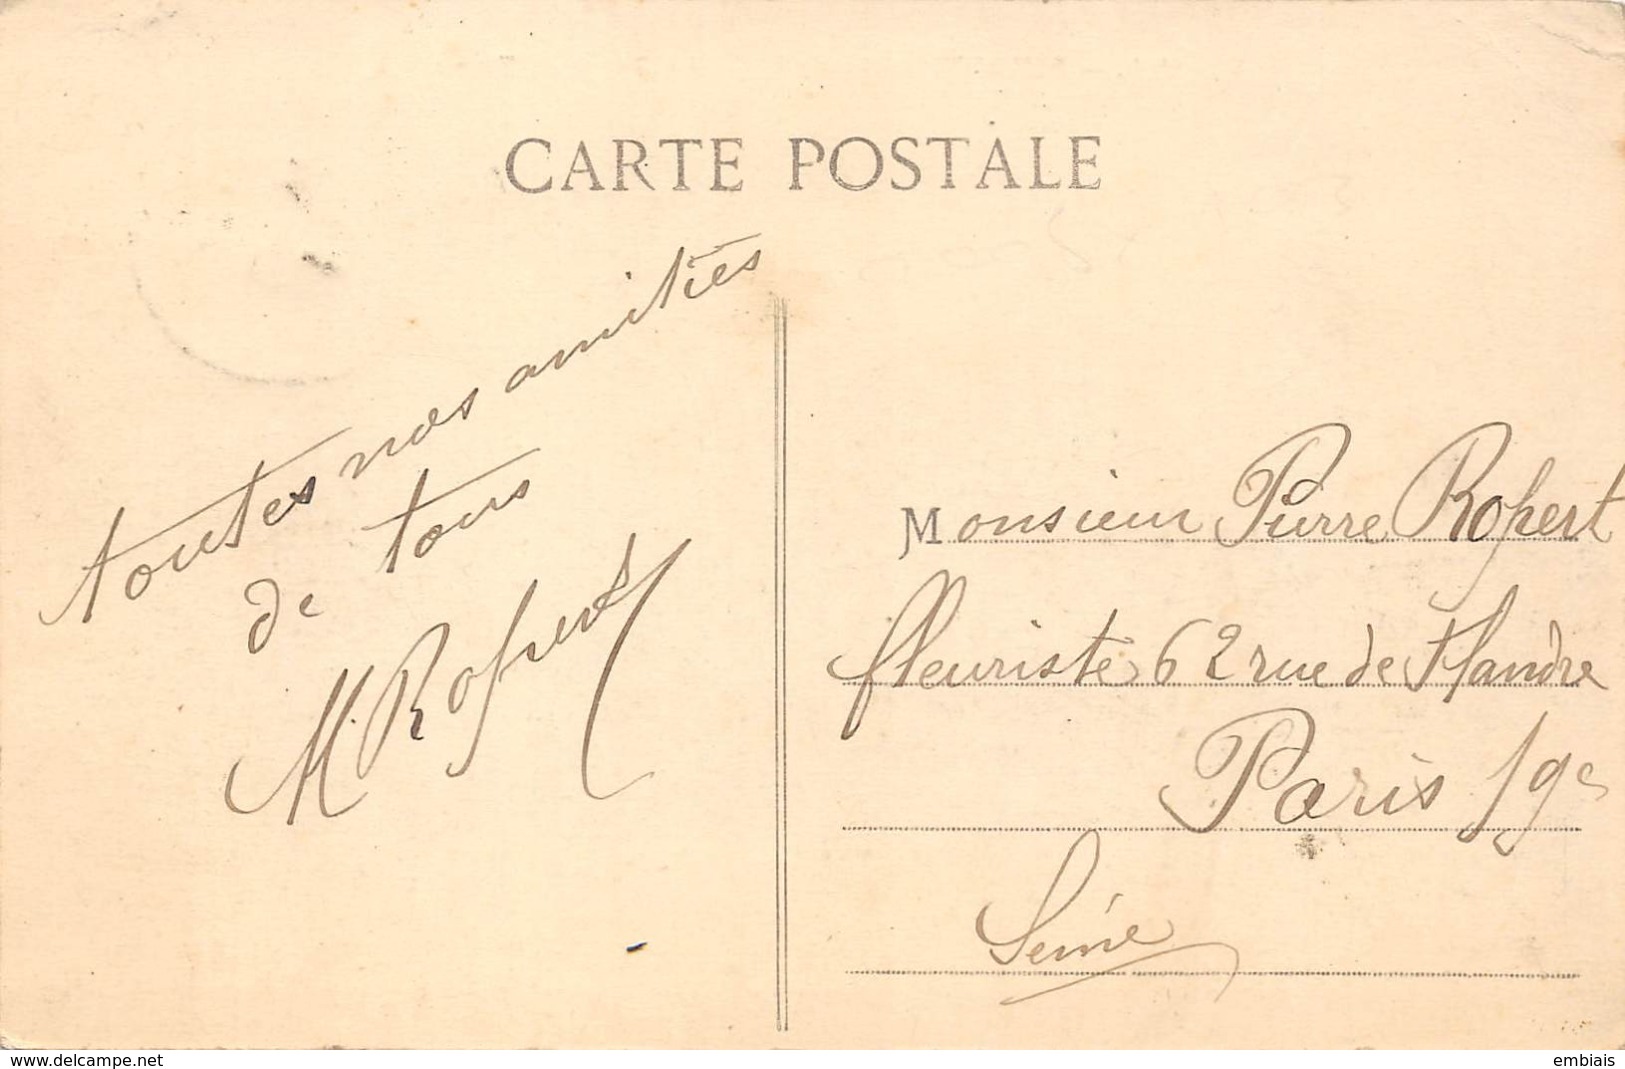 CARTE POSTALE
toutes nos amitiés
de tous
M. Ropert
Monsieur Pierre Ropert
fleuriste 62 rue de Flandre
Paris 19e
Seine
www.delcampe.net
embiais